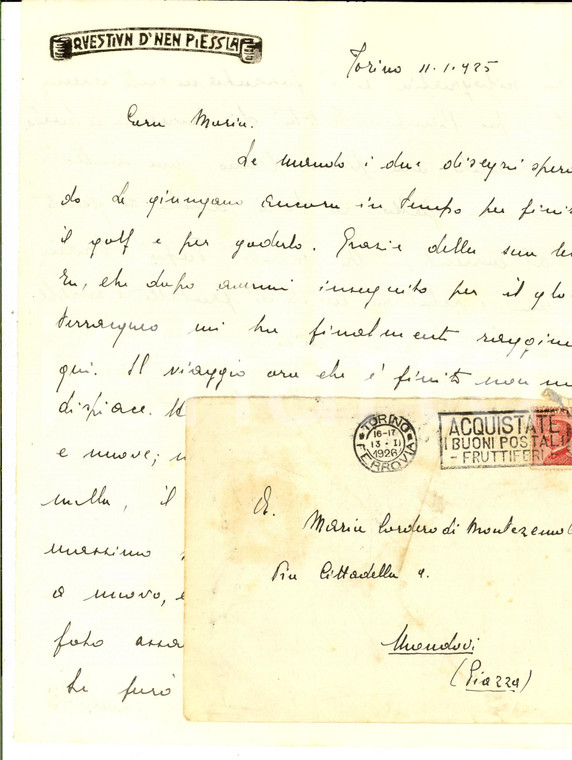 QVESTIVN D'NEN PIESSLA
Torino 11.1.925
Cara Maria.
Le mando i due disegni spera
do Le giungano ancora in tempo per finir
il golf e per goderlo. Grazie della sua let
ra, che dopo avermi inseguito per il glo
terracqueo mi ha finalmente raggiun
qui. Il viaggio ora che è finito non m
dispiace.
e nuove;
nulla, il
massimo
a nuovo, e
foto assa
Le farò
TORINO
16-17
13 · II
1926
FERROVIA
ACQUISTATE
I BUONI POSTALI
- FRUTTIFERI
Maria Cordero di Montezemol
Via Cittadella 4.
Mondovì
(Piazza)